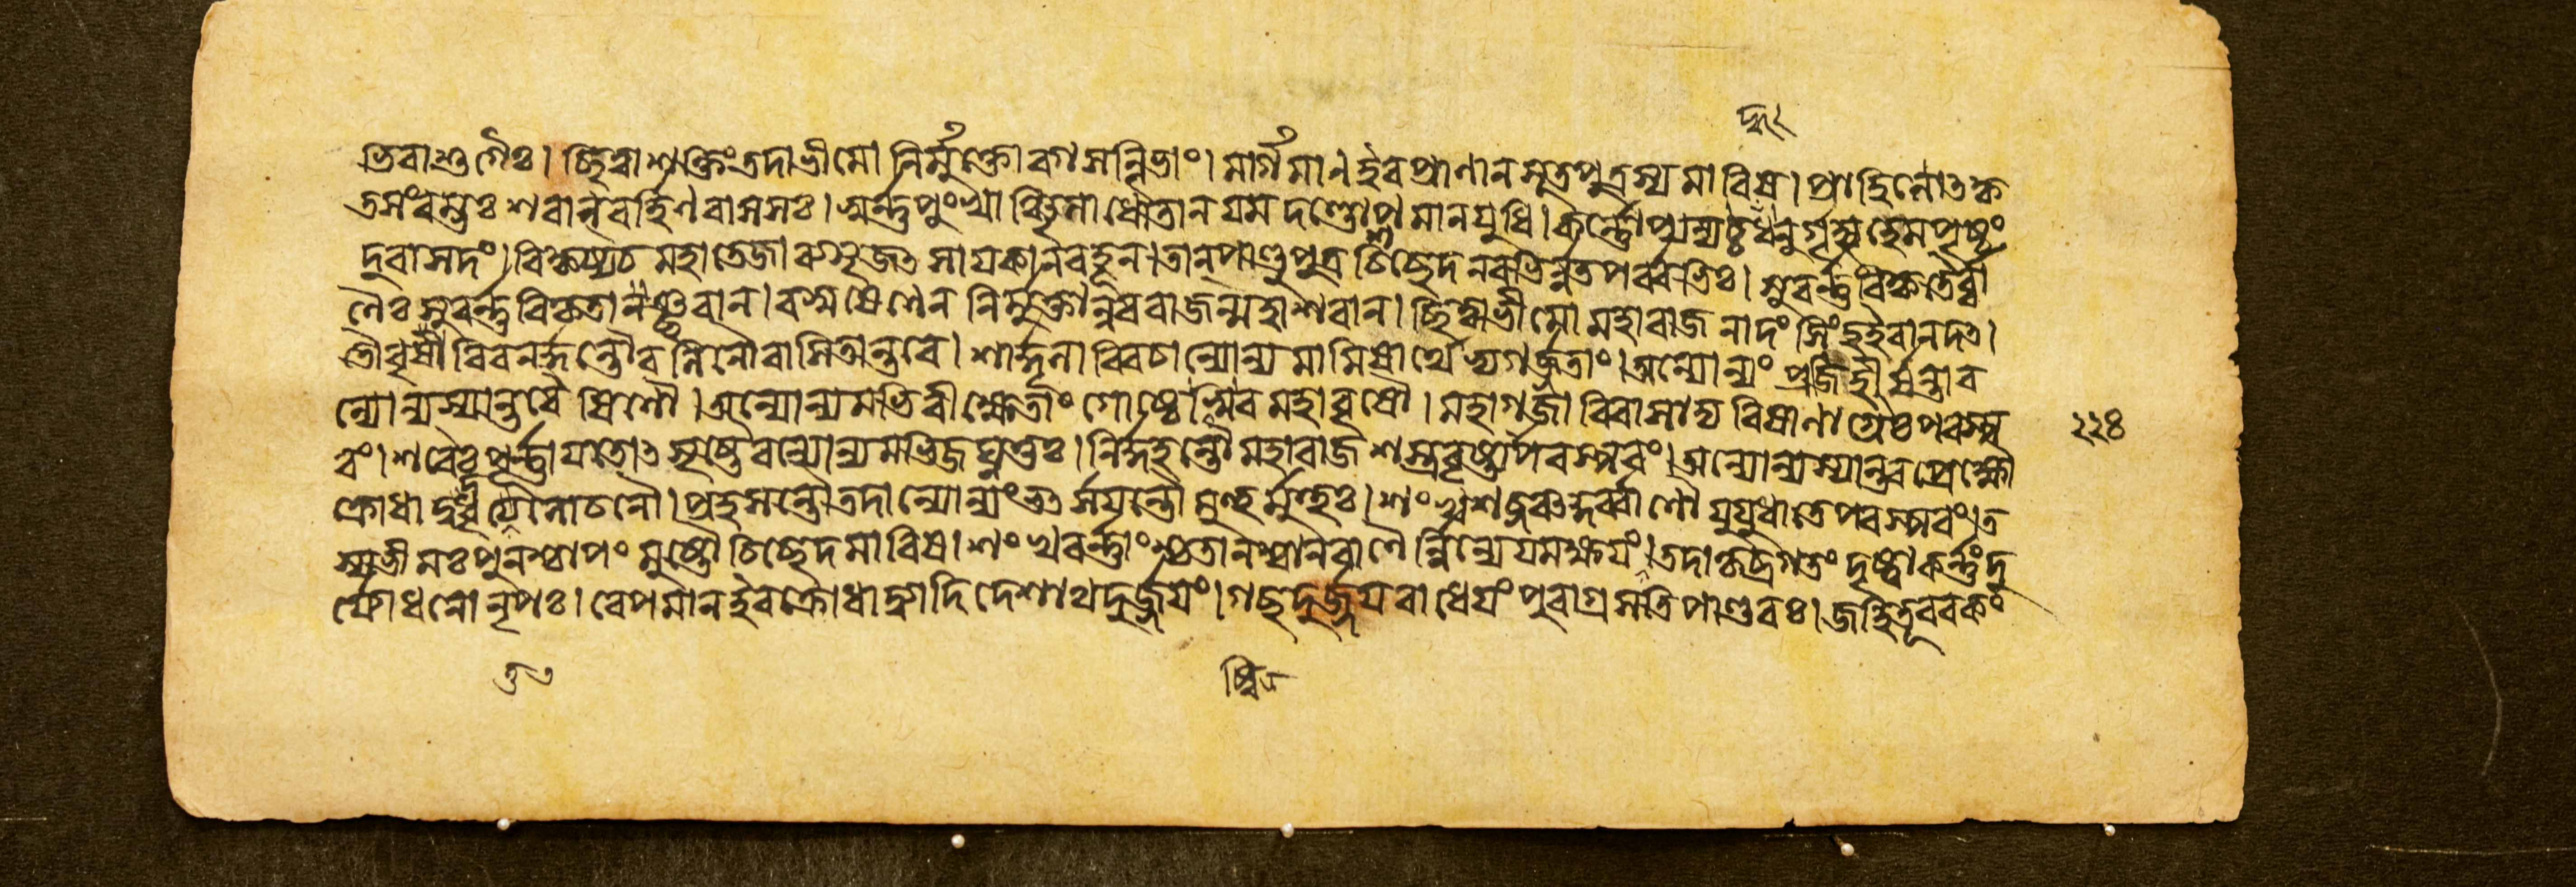 ভিরাশুগৈঃ। ছিত্বা শক্তিং তদা ভীমো নির্মুক্তোরগসন্নিভাং। মার্গমান ইব প্রাণান সূতপুত্রস্য মারিষ। প্রাহিণোৎ
তসংরব্ধঃ শরান্বর্হিণবাসসঃ। স্বর্ণপুংখাঞ্ছিলাধৌতান যমদণ্ডোপমান যুধি। কর্ণোপ্যন্যদ্ধনুর্গৃহ্য হেমপৃষ্ঠং
দুরাসদং। বিকৃষ্য চ মহাতেজা ব্যসৃজৎ সায়কান বহূন। তান্ পাণ্ডুপুত্রশ্চিচ্ছেদ নবভির্নতপর্বভিঃ। সুবর্ণবিকৃতৈর্বা
ণৈঃ সুবর্ণবিকৃতানঞ্ছরান। নির্মুক্তান্নব রাজন্মহাশরান। ছিত্বা ভীমো মহারাজ নাদং সিংহ ইবানদৎ।
তৌ বৃষাবিব নর্দন্তৌ বলিনৌ বাসিতান্তরে। শার্দূলাবিব চান্যোন্যমামিষার্থেভ্যগর্জতাং। অন্যোন্যং প্রজিহীর্ষন্তাব
ন্যোন্যস্যান্তরৈষিণৌ। অন্যোন্যমভিবীক্ষেতাং গোষ্ঠেষ্বিব মহাবৃষৌ। মহাগজাবিবাসাদ্য বিষাণাগ্রৈঃ পরস্প
২২৪
রং। শরৈঃ পূর্ণায়তোৎসৃষ্টৈরন্যোন্যমভিজঘ্নতুঃ। নির্দহন্তৌ মহারাজ শস্ত্রবৃষ্ট্যা পরস্পরং। অন্যোন্যস্যান্তরপ্রেক্ষৌ
প্রহসন্তৌ তদান্যোন্যং ভর্ৎসয়ন্তৌ মুহুর্মুহুঃ। শংখশব্দঞ্চ কুর্বাণৌ যুযুধাতে পরস্পরং। ত
স্য ভীমঃ পুনশ্চাপং মুষ্টৌ চিচ্ছেদ মারিষ। শংখবর্ণাংশ্চ তানশ্বান বাণৈর্নিন্যে যমক্ষয়ং। তদা কৃচ্ছ্রগতং দৃষ্ট্বা কর্ণং দু
র্যোধনো নৃপঃ। বেপমান ইব ক্রোধাদ্ব্যাদিদেশাথ দুর্জয়ং। গচ্ছ দুর্জয় রাধেয়ং পুরা গ্রসতি পাণ্ডবঃ। জহি তূবরকং